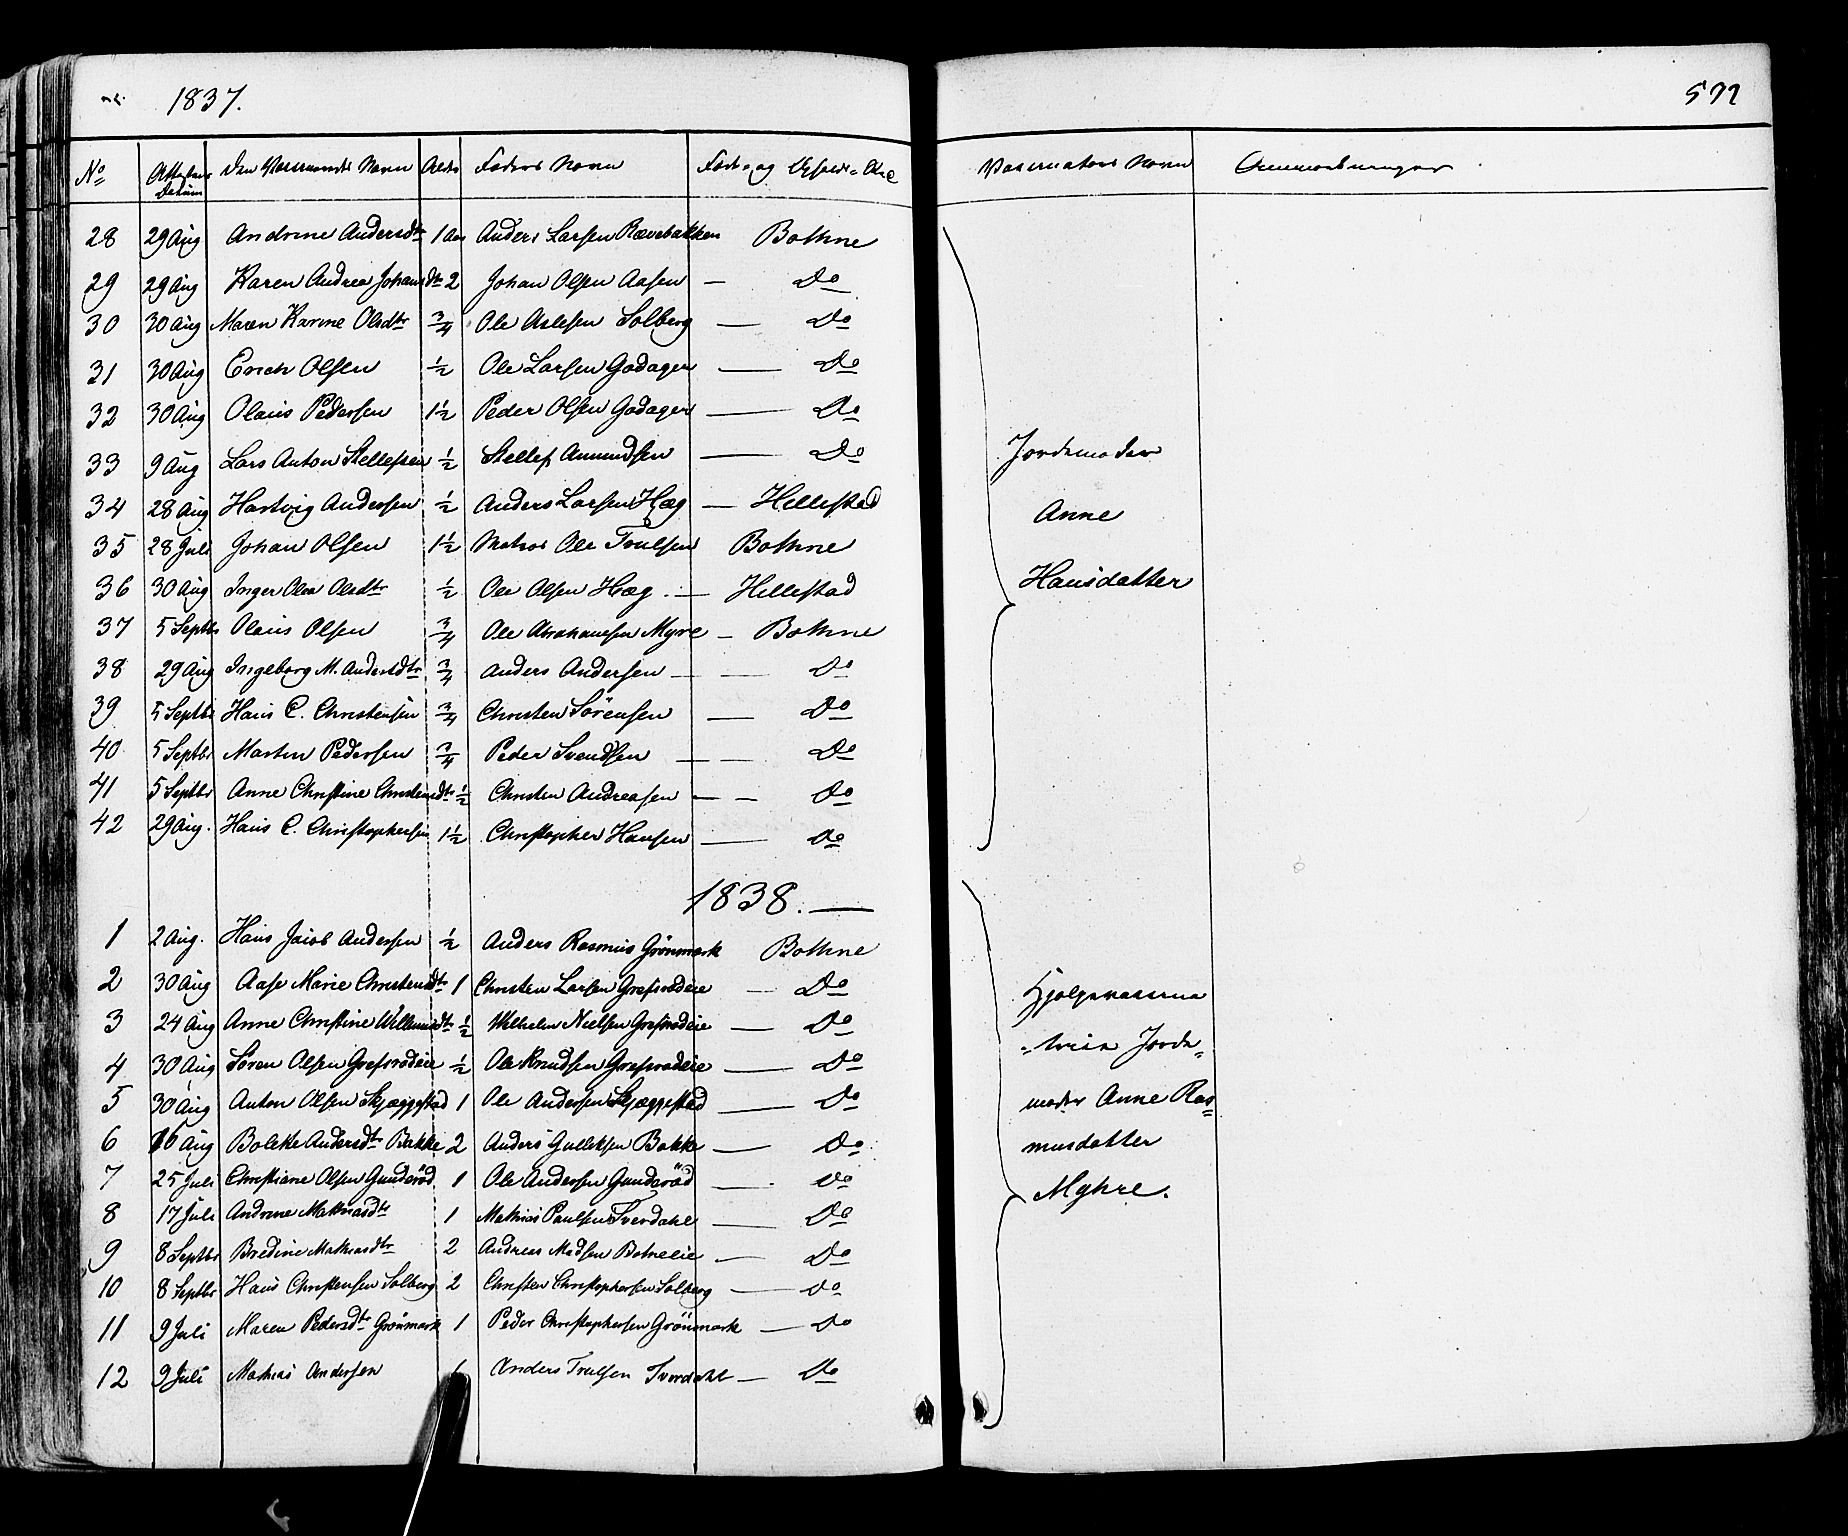 1837.
No Attestens Datum Den Vaccineredes Navn Alder Faders Navn Føde- og Opholds-Sted
28 29 Aug Andrine Andersdtr 1 Aar Anders Larsen Rævebakken Bothne
29 29 Aug Karen Andrea Johansdtr 2 Johan Olsen Aasen — Do
30 30 Aug Maren Karine Olsdtr 3/4 Ole Aslesen Solberg — Do
31 30 Aug Erich Olsen 1/2 Ole Larsen Godager — Do
32 30 Aug Olaus Pedersen 1 1/2 Peder Olsen Godager — Do
33 9 Aug Lars Anton Stellefsen 1/2 Stellef Amundsen — Do
34 28 Aug Hartvig Andersen 1/2 Anders Larsen Hæg — Hillestad
35 28 Juli Johan Olsen 1 1/2 Matros Ole Trulsen Bothne
36 30 Aug Inger Olea Olsdtr 1/2 Ole Olsen Hæg — Hillestad
37 5 Septbr Olaus Olsen 3/4 Ole Abrahamsen Myre — Bothne
38 29 Aug Ingeborg M. Andersdtr 3/4 Anders Andersen — Do
39 5 Septbr Hans C. Christensen 3/4 Christen Sörensen — Do
40 5 Septbr Martin Pedersen 3/4 Peder Svendsen — Do
41 5 Septbr Anne Christine Christensdtr 1/2 Christen Andreasen — Do
42 29 Aug. Hans C. Christophersen 1 1/2 Christopher Hansen — Do
1838. —
1 2 Aug. Hans Jacob Andersen 1/2 Anders Rasmus Grönmark Bothne
2 30 Aug Aase Marie Christensdtr 1 Christen Larsen Grefsrødeie — Do
3 24 Aug Anne Christine Willumsdtr 1/2 Wilhelm Nielsen Grefsrødeie — Do
4 30 Aug Søren Olsen Grefsrødeie 1/2 Ole Knudsen Grefsrødeie — Do
5 30 Aug Anton Olsen Skjæggestad 1 Ole Andersen Skjæggestad — Do
6 16 Aug Bolette Andersdtr Bakke 2 Anders Gulliksen Bakke — Do
7 25 Juli Christiane Olsen Gunderöd 1 Ole Andersen Gunderöd — Do
8 17 Juli Andrine Mathiasdtr 1 Mathias Paulsen Tverdahl — Do
9 8 Septbr Bredine Mathiasdtr 2 Andreas Madsen Botneeie — Do
10 8 Septbr Hans Christensen Solberg 2 Christen Christophersen Solberg — Do
11 9 Juli Maren Pedersdtr Grönmark 1 Peder Christophersen Grönmark — Do
12 9 Juli Mathias Andersen Anders Trulsen Tverdahl — Do
Vaccinators Navn Anmærkninger
Jordemoder
Anne
Hansdatter
Hjelpevaccina
-trice Jorde-
moder Anne Ras-
musdatter
Myhre.